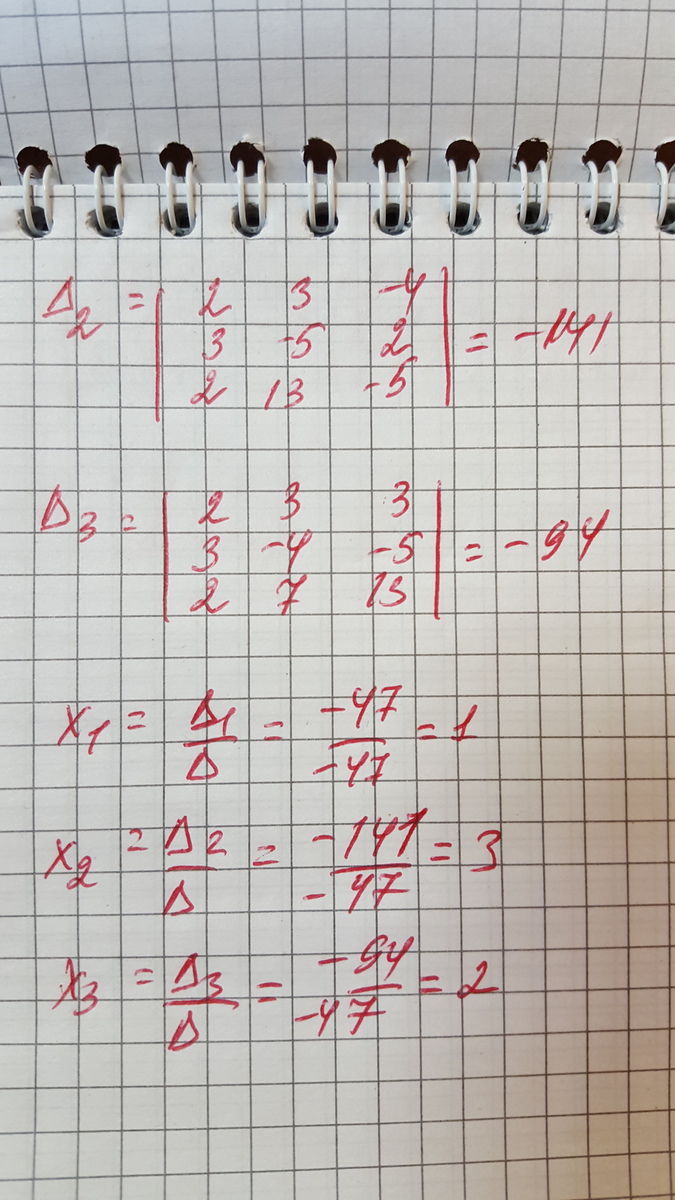 Δ₂ = | 2 3 -4 |
| 3 -5 2 | = -141
| 2 13 -5 |
Δ₃ = | 2 3 3 |
| 3 -4 -5 | = -94
| 2 7 13 |
x₁ = Δ₁/Δ = -47/-47 = 1
x₂ = Δ₂/Δ = -141/-47 = 3
x₃ = Δ₃/Δ = -94/-47 = 2